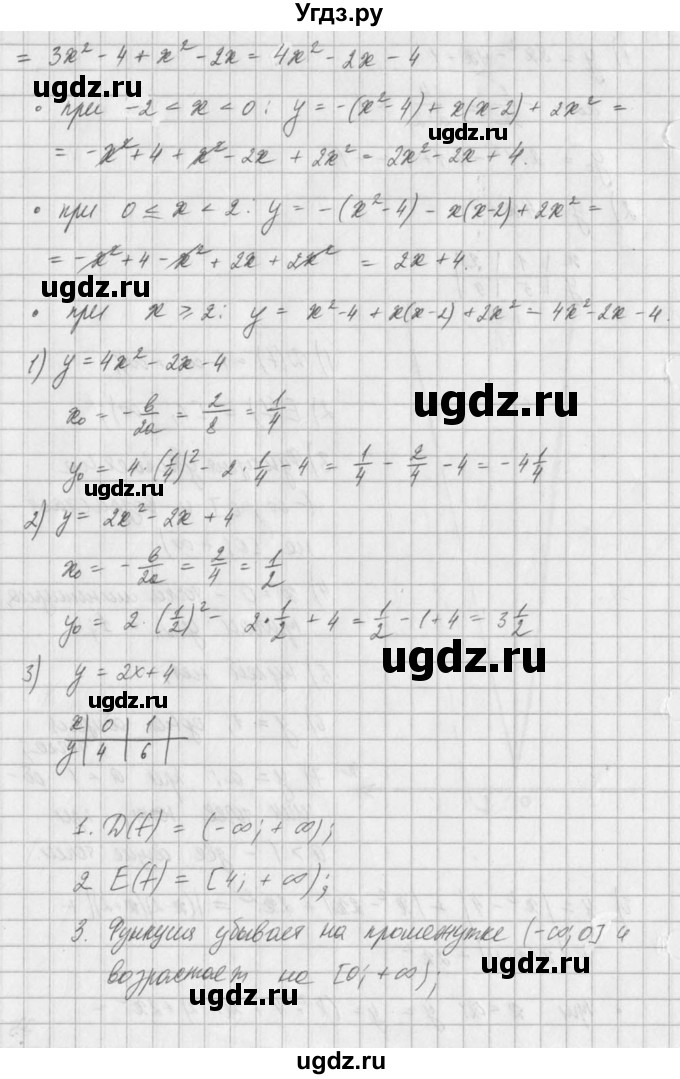 Угдз.ру
= 3x² - 4 + x² - 2x = 4x² - 2x - 4
ugdz.ru
• при -2 < x < 0: y = -(x² - 4) + x(x-2) + 2x² =
ugdz.ru
= -x² + 4 + x² - 2x + 2x² = 2x² - 2x + 4.
• при 0 ≤ x < 2: y = -(x² - 4) - x(x-2) + 2x² =
= -x² + 4 - x² + 2x + 2x² = 2x + 4.
ugdz.ru
• при x ≥ 2: y = x² - 4 + x(x-2) + 2x² = 4x² - 2x - 4.
1) y = 4x² - 2x - 4
x₀ = - b/2a = 2/8 = 1/4
ugdz.ru
y₀ = 4·(1/4)² - 2·1/4 - 4 = 1/4 - 2/4 - 4 = -4 1/4
ugdz.ru
2) y = 2x² - 2x + 4
x₀ = - b/2a = 2/4 = 1/2
y₀ = 2·(1/2)² - 2·1/2 + 4 = 1/2 - 1 + 4 = 3 1/2
ugdz.ru
3) y = 2x + 4
ugdz.ru
x | 0 | 1 |
y | 4 | 6 |
1. D(f) = (-∞; +∞);
2 E(f) = [4; +∞);
3. Функция убывает на промежутке (-∞; 0] и
возрастает на [0; +∞);
ugdz.ru
ugdz.ru
ugdz.ru